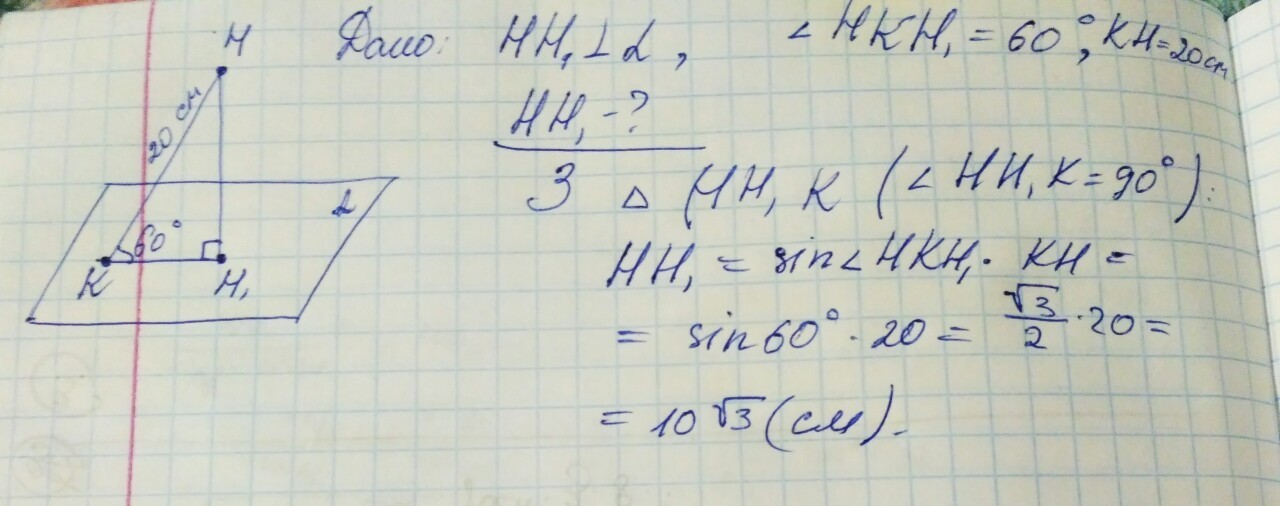 H
20 см
60°
α
K
H₁
Дано: HH₁ ⊥ α, ∠HKH₁ = 60°, KH = 20 см
HH₁ - ?
З △ HH₁K (∠HH₁K = 90°):
HH₁ = sin∠HKH₁ · KH =
= sin60° · 20 = √3/2 · 20 =
= 10√3 (см).